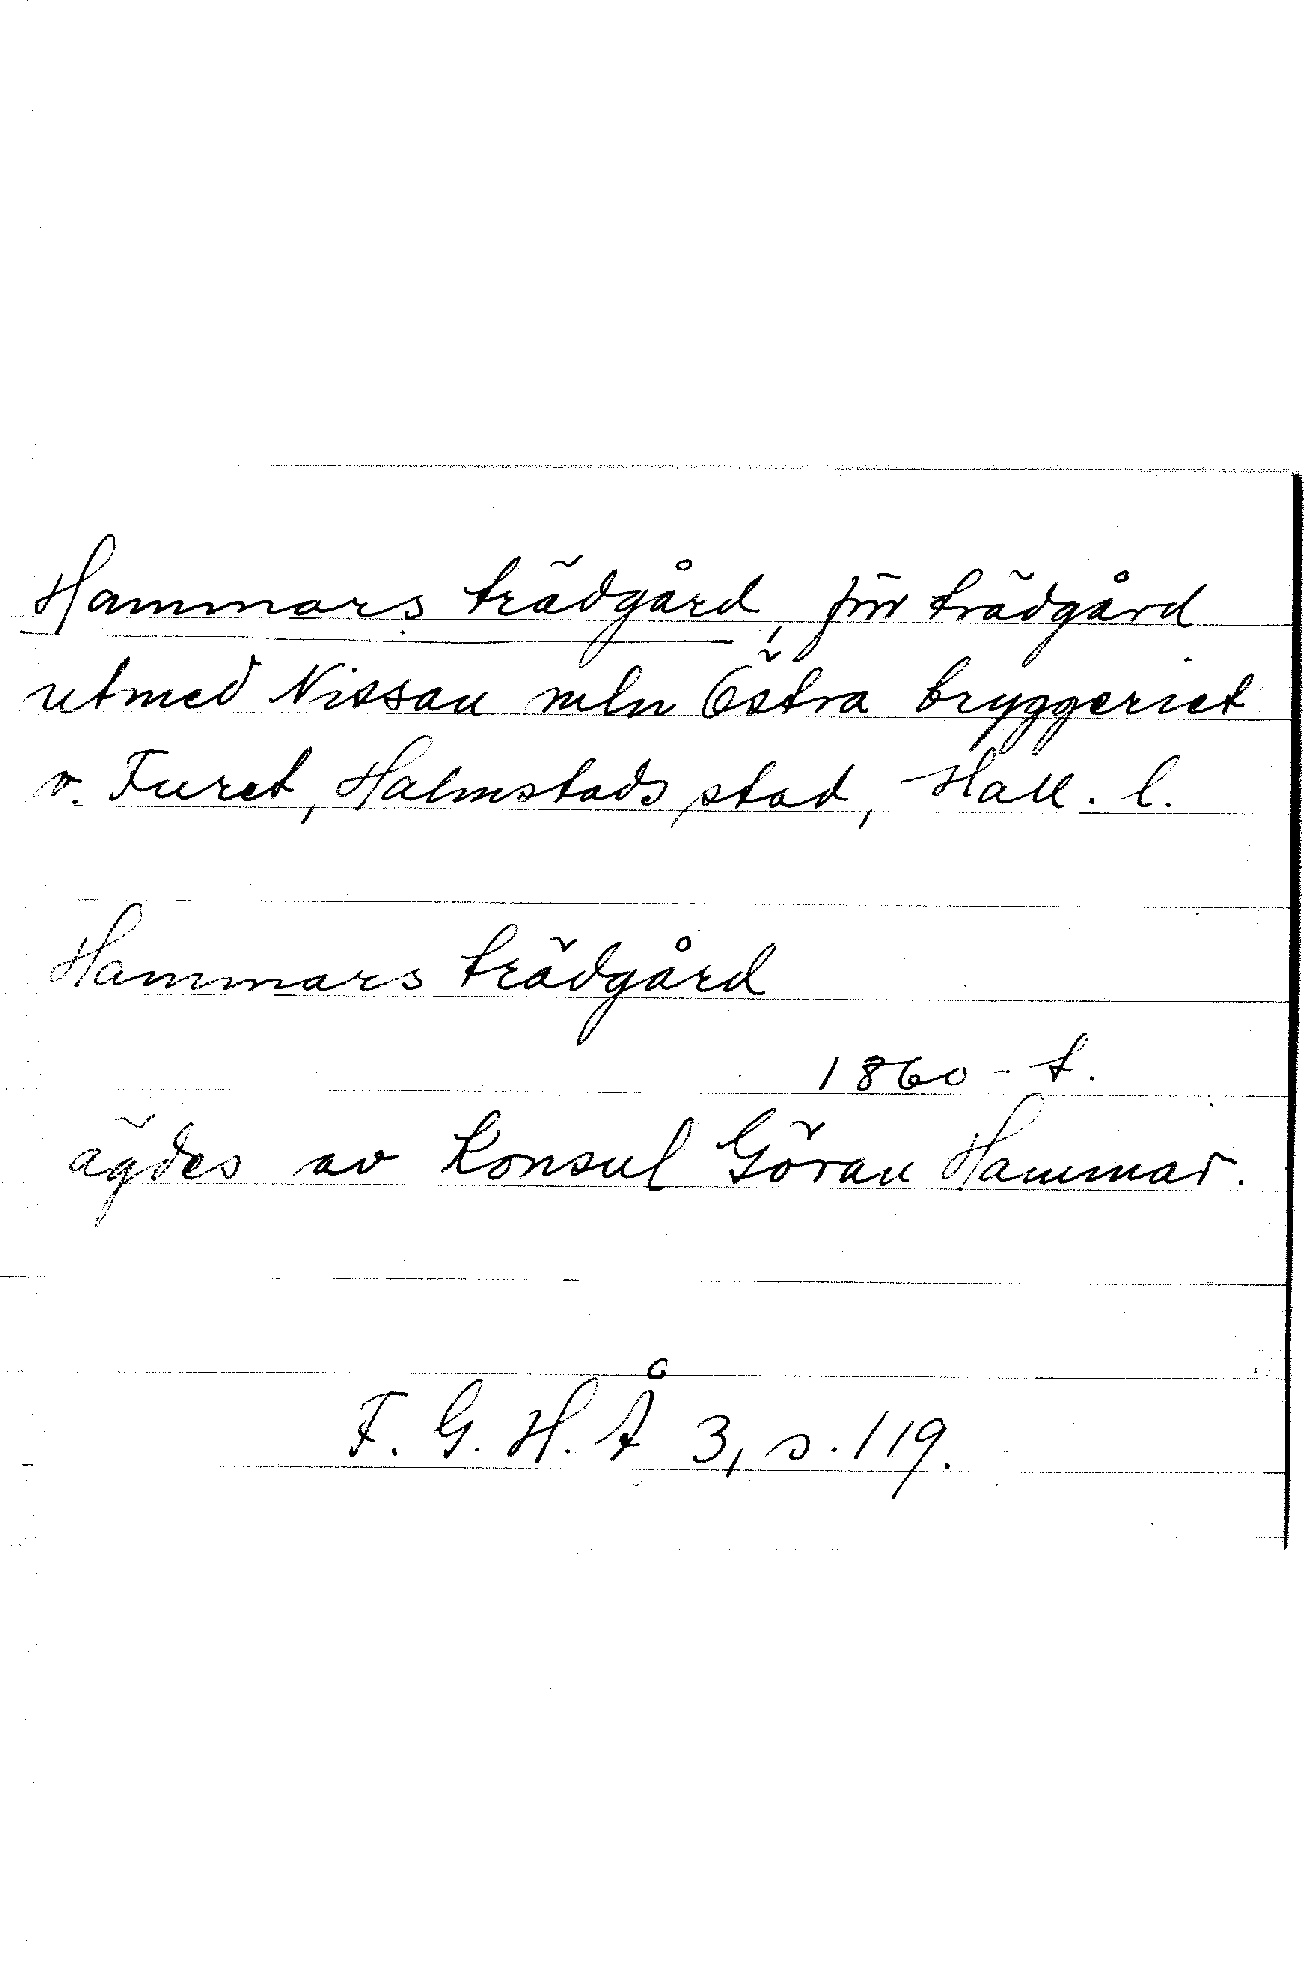 Hammars trädgård, förr trädgård
utmed Nissan mln Östra bryggeriet
o. Furet, Halmstads stad, Hall. l.
Hammars trädgård
1860-t.
ägdes av Konsul Göran Hammar.
F. G. H. Å 3, s. 119.